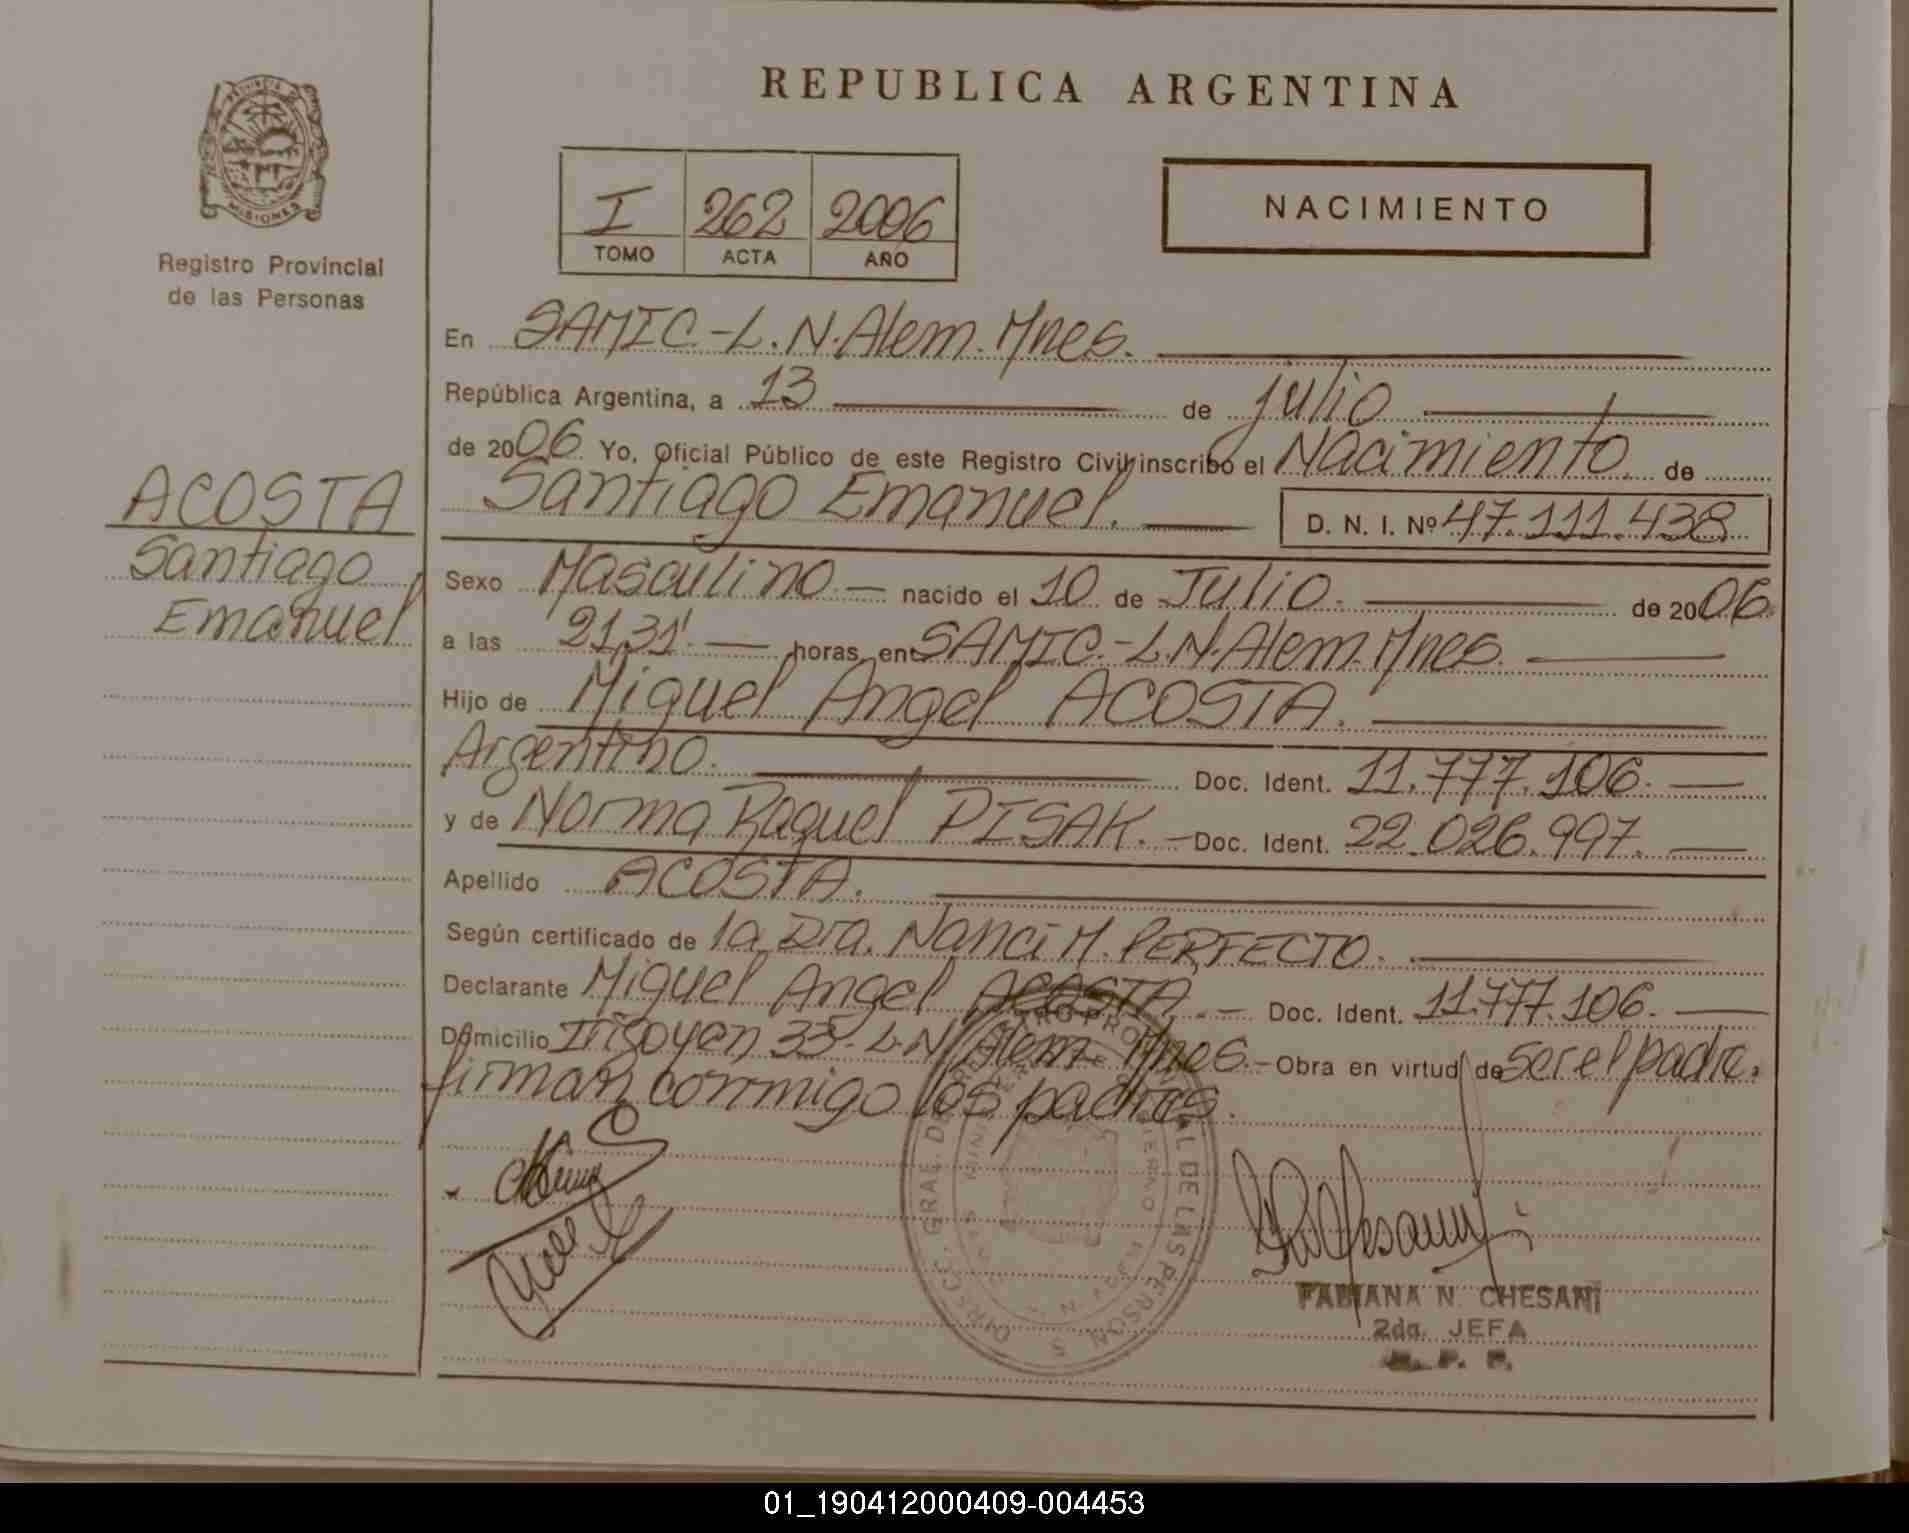 REPUBLICA ARGENTINA
PROVINCIA DE
MISIONES
Registro Provincial
de las Personas
I 262 2006
TOMO ACTA AÑO
NACIMIENTO
ACOSTA
Santiago
Emanuel
En SAMIC.-L.N.Alem.Mnes.
República Argentina, a 13 de julio
de 2006. Yo, Oficial Público de este Registro Civil inscribo el Nacimiento. de
Santiago Emanuel. D. N. I. Nº 47.111.438
Sexo Masculino.- nacido el 10 de Julio. de 2006.
a las 21,31'. horas, en SAMIC.-L.N.Alem.Mnes.
Hijo de Miguel Angel ACOSTA.
Argentino. Doc. Ident. 11.777.106.-
y de Norma Raquel PISAK.- Doc. Ident. 22.026.997.-
Apellido ACOSTA.
Según certificado de la Dra. Nanci M. PERFECTO.
Declarante Miguel Angel ACOSTA.- Doc. Ident. 11.777.106.-
Domicilio Irigoyen 33-L.N.Alem-Mnes.- Obra en virtud de ser el padre.
firman conmigo los padres.
FABIANA N. CHESANI
2da. JEFA
R. P. P.
01_190412000409-004453